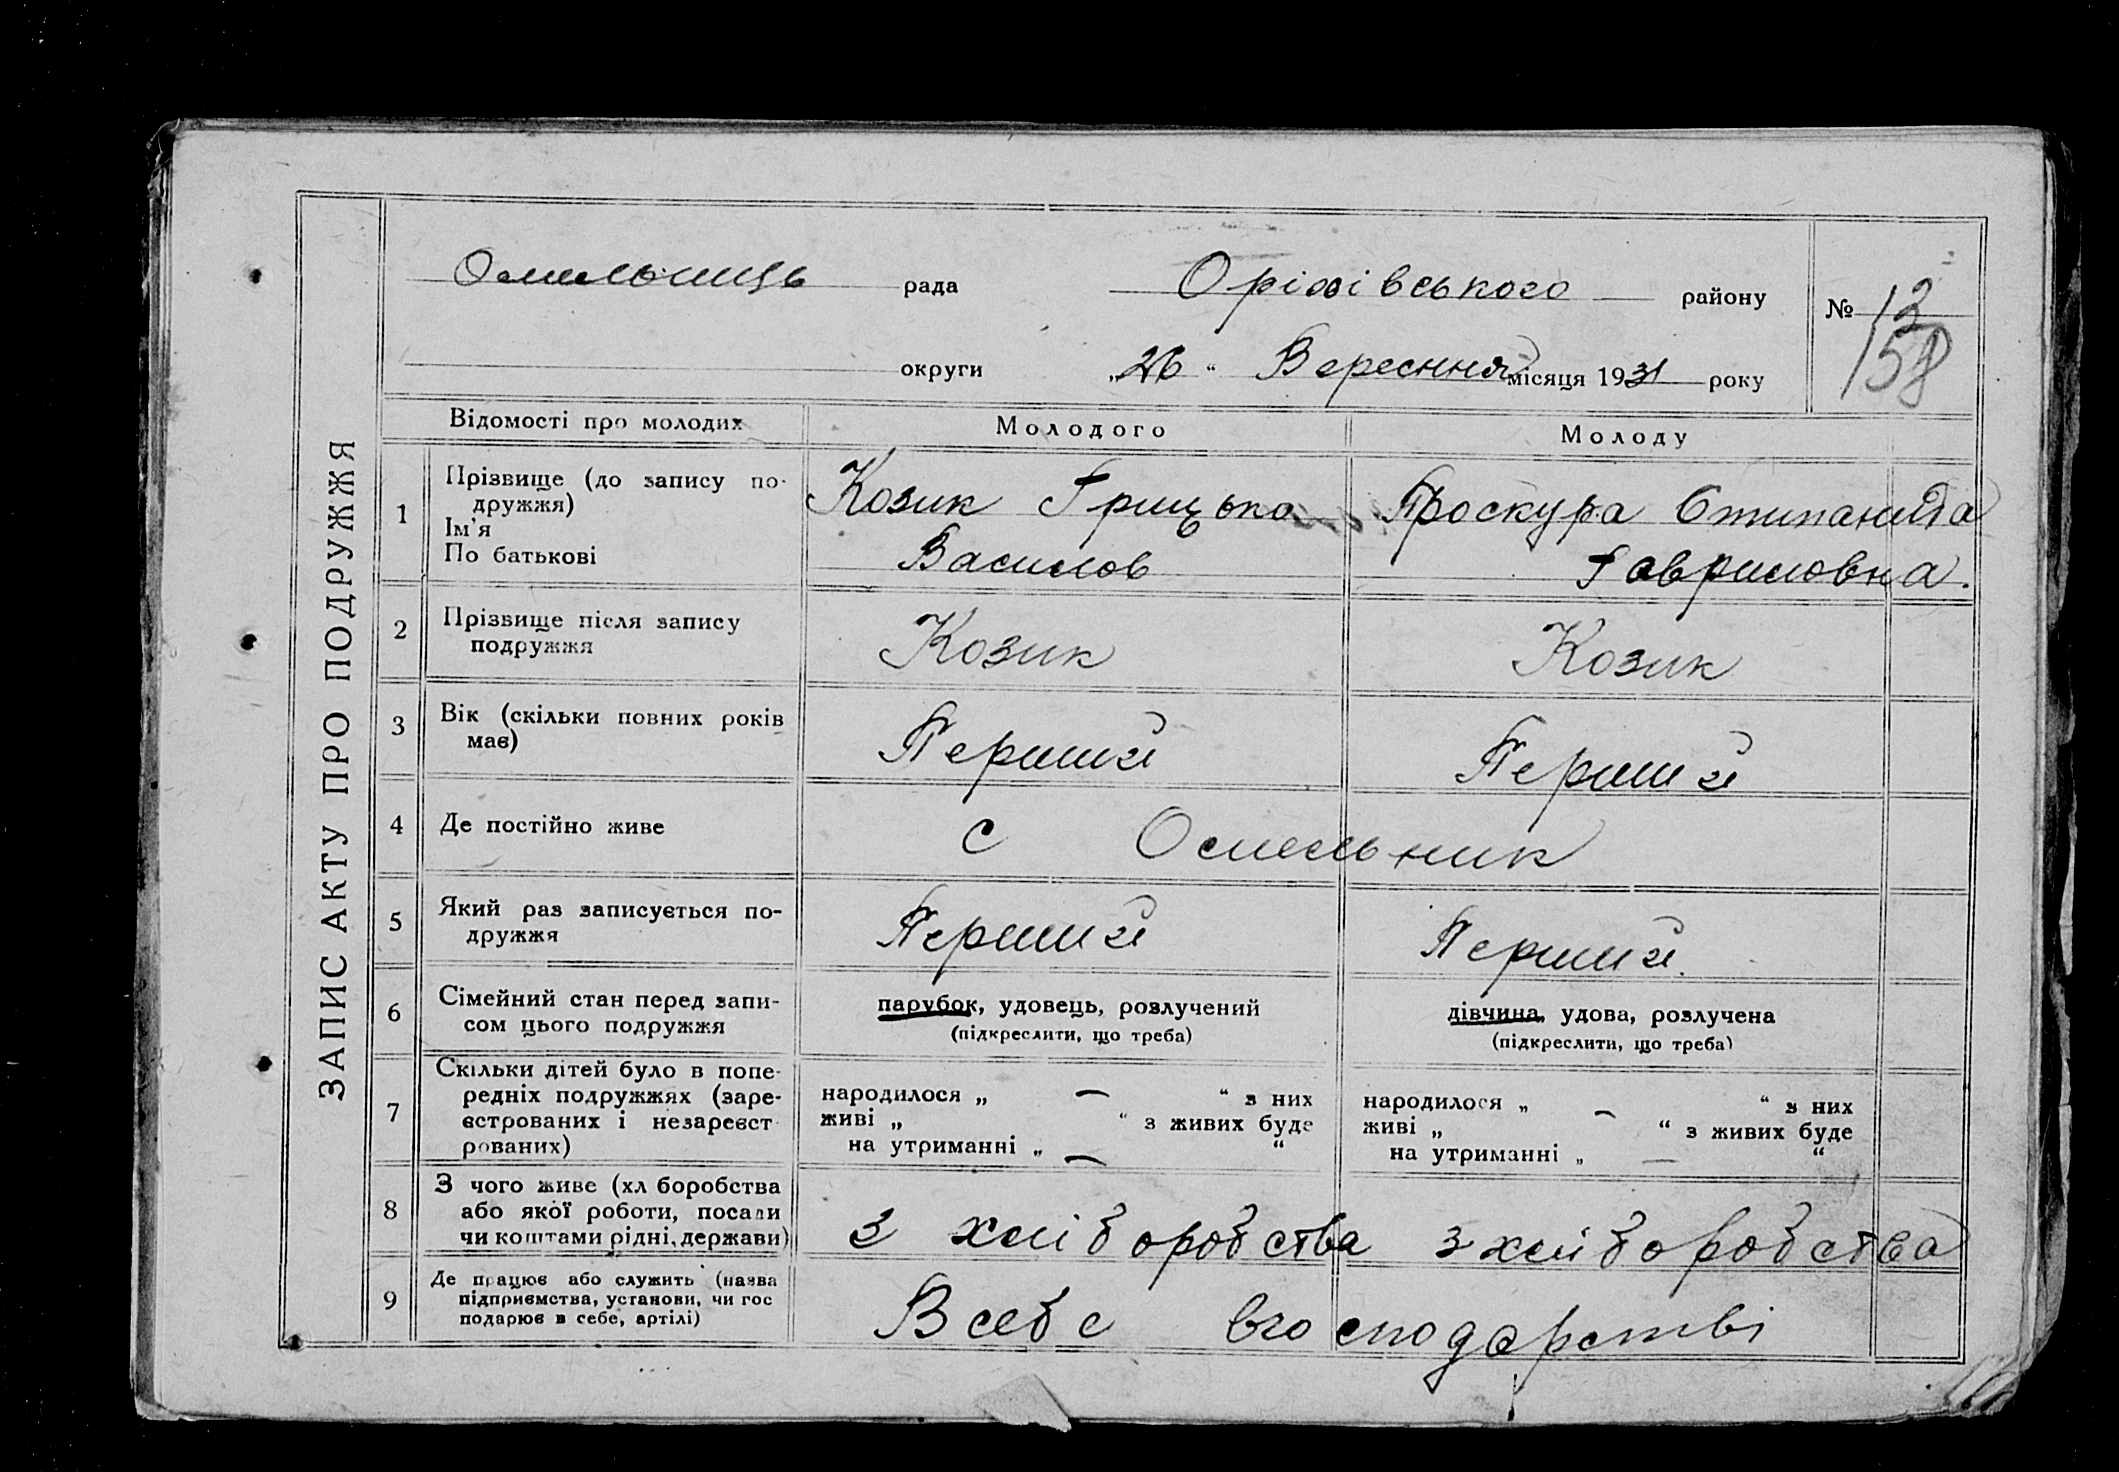 ЗАПИС АКТУ ПРО ПОДРУЖЖЯ
Омельниць рада Оріхівського району № 13
158
округи „26“ Вересння місяця 1931 року
Відомості про молодих Молодого Молоду
1 Прізвище (до запису по-
дружжя)
Ім'я
По батькові
Козик Грицько
Василов
Проскура Стипанида
Гавриловна.
2 Прізвище після запису
подружжя
Козик Козик
3 Вік (скільки повних років
має)
Перший Перший
4 Де постійно живе с Омельник
5 Який раз записується по-
дружжя
Перший Перший.
6 Сімейний стан перед запи-
сом цього подружжя
парубок, удовець, розлучений
(підкреслити, що треба)
дівчина, удова, розлучена
(підкреслити, що треба)
7 Скільки дітей було в попе-
редніх подружжях (заре-
єстрованих і незареєст
рованих)
народилося „ — “ з них
живі „ “ з живих буде
на утриманні „ — “
народилося „ — “ з них
живі „ “ з живих буде
на утриманні „ — “
8 З чого живе (хл боробства
або якої роботи, посади
чи коштами рідні, держави)
з хліборобства з хліборобства
9 Де працює або служить (назва
підприємства, установи, чи гос
подарює в себе, артілі)
В себе вгосподарстві